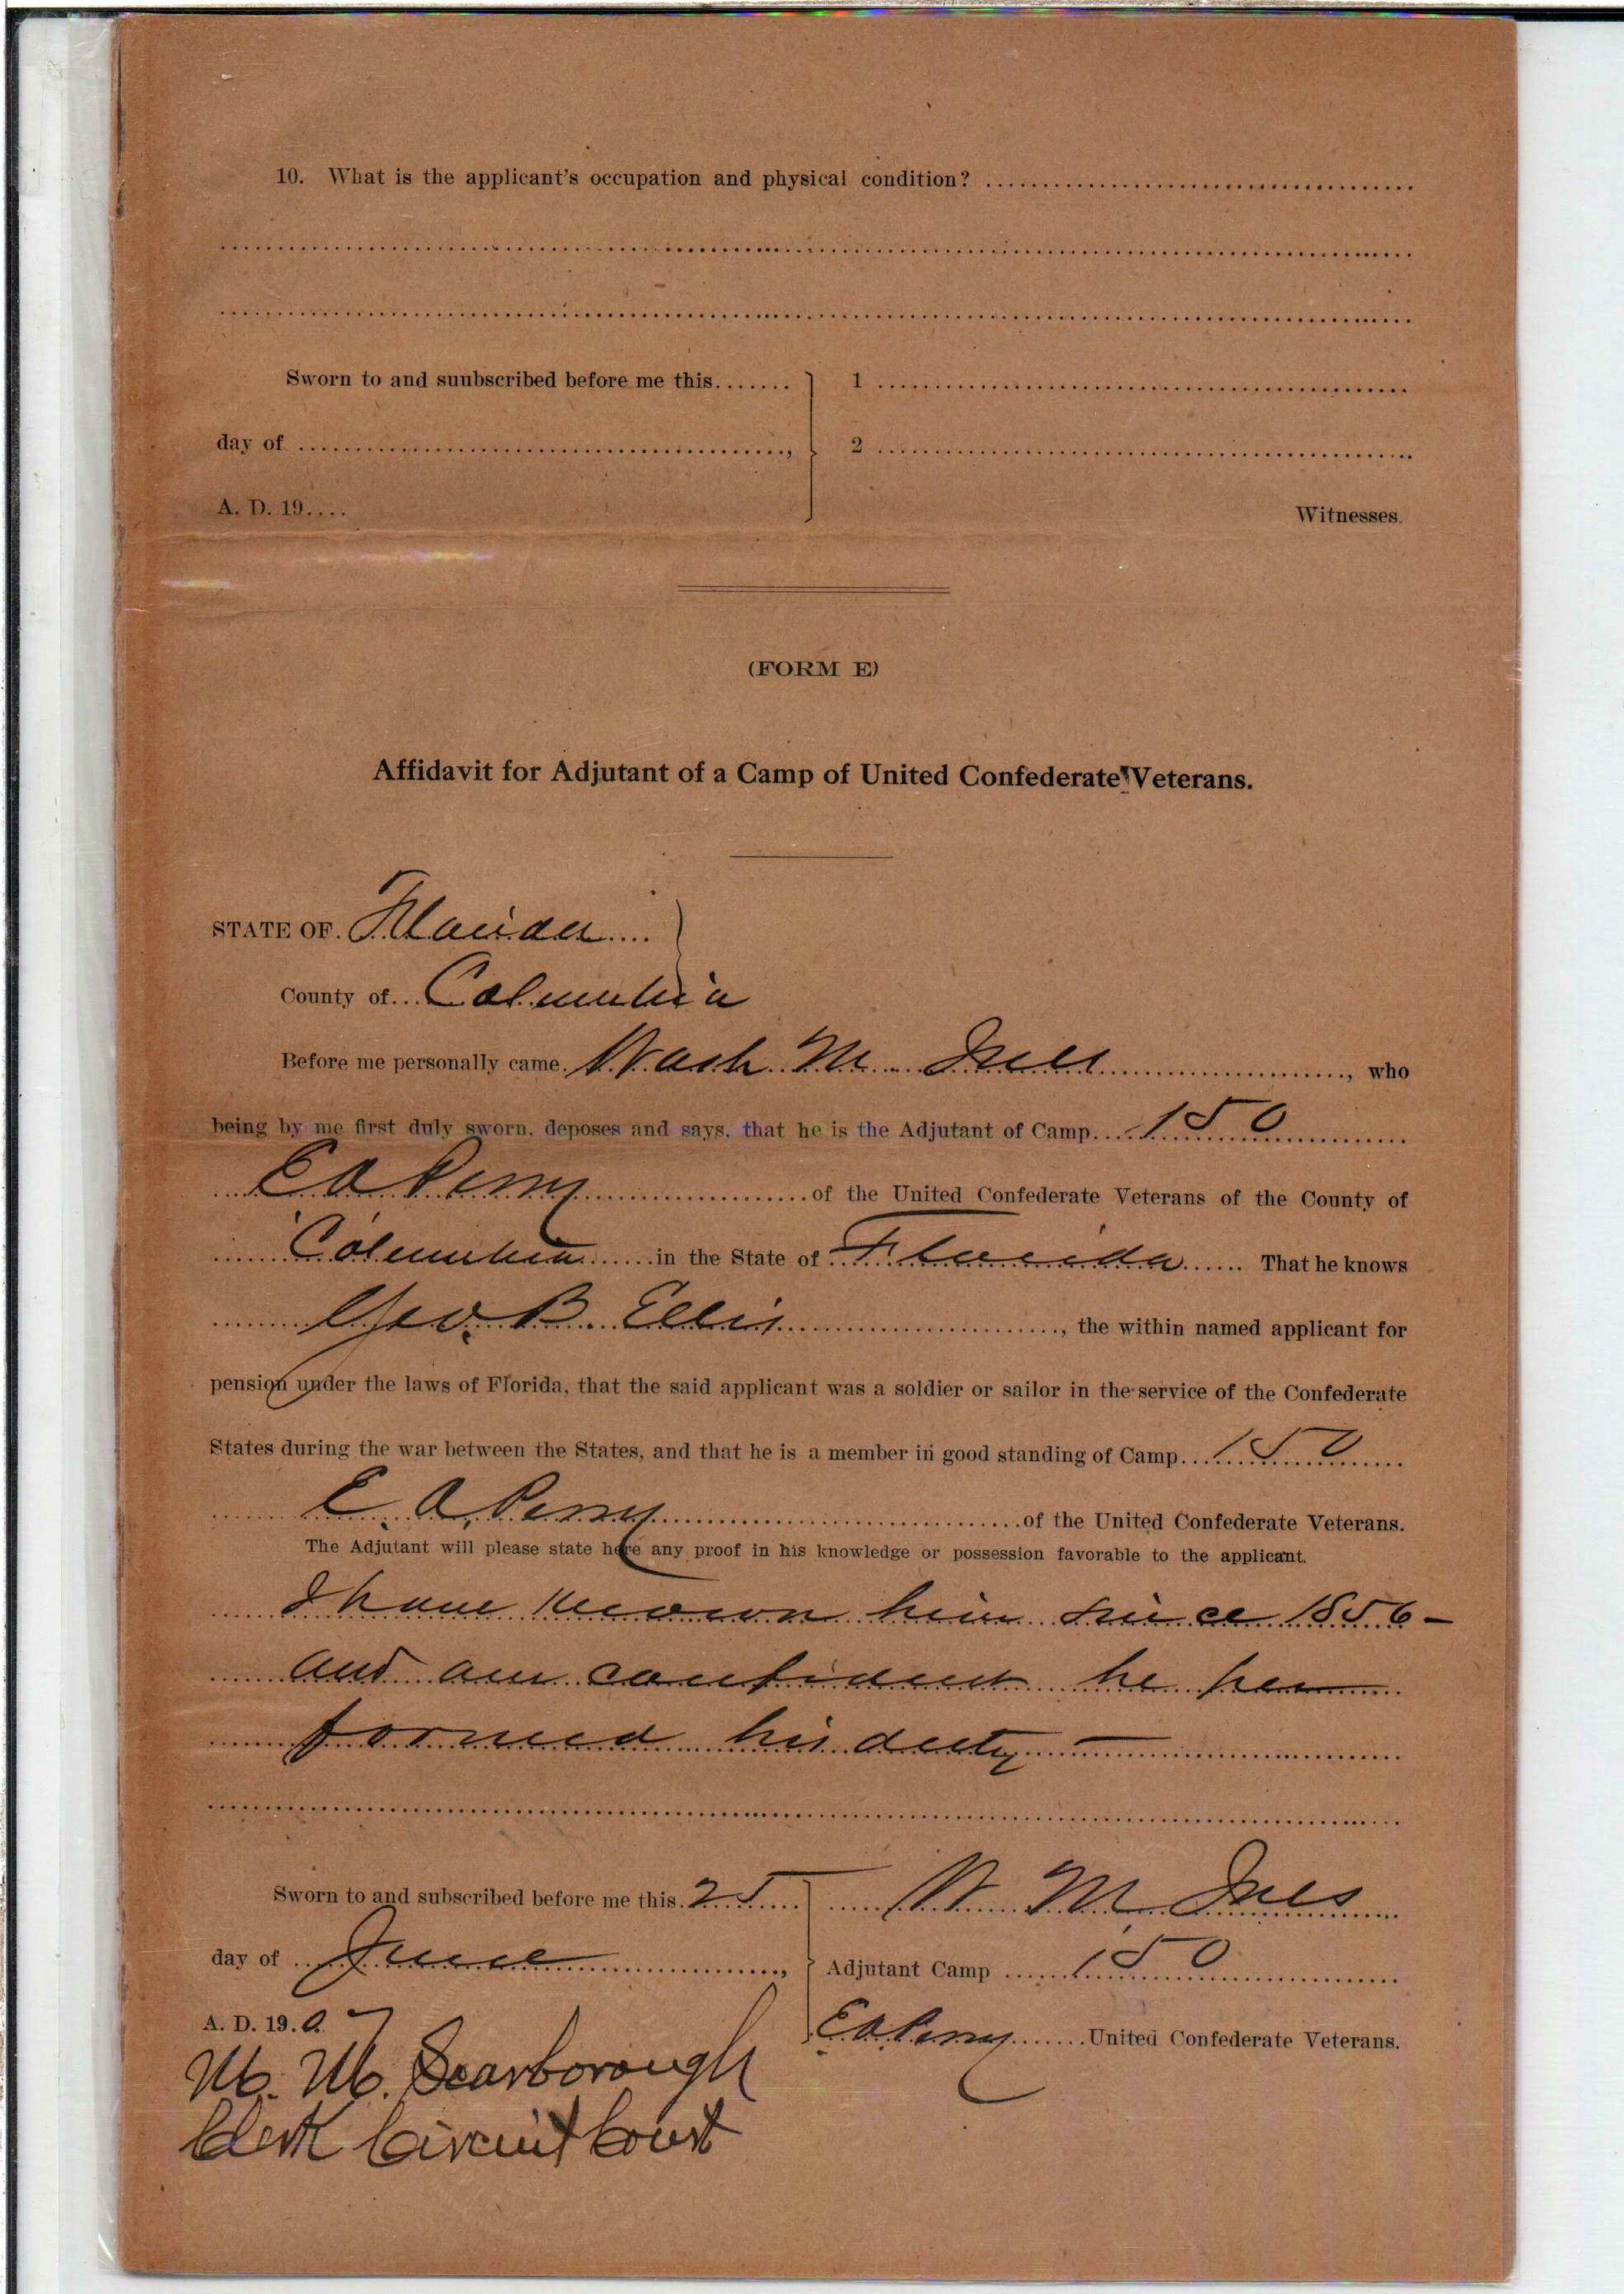 10. What is the applicant's occupation and physical condition?
Sworn to and suubscribed before me this
1
day of
2
A. D. 19
Witnesses.
(FORM E)
Affidavit for Adjutant of a Camp of United Confederate Veterans.
STATE OF Florida
County of Columbia
Before me personally came Wash M. Ives, who
being by me first duly sworn, deposes and says, that he is the Adjutant of Camp 150
E A Perry of the United Confederate Veterans of the County of
Columbia in the State of Florida That he knows
Geo. B. Ellis, the within named applicant for
pension under the laws of Florida, that the said applicant was a soldier or sailor in the service of the Confederate
States during the war between the States, and that he is a member in good standing of Camp 150
E. A. Perry of the United Confederate Veterans.
The Adjutant will please state here any proof in his knowledge or possession favorable to the applicant.
I have known him since 1856 -
and am confident he per
formed his duty -
Sworn to and subscribed before me this 25
W. M. Ives
day of June,
Adjutant Camp 150
A. D. 1907
E A Perry United Confederate Veterans.
M. M. Scarborough
Clerk Circuit Court